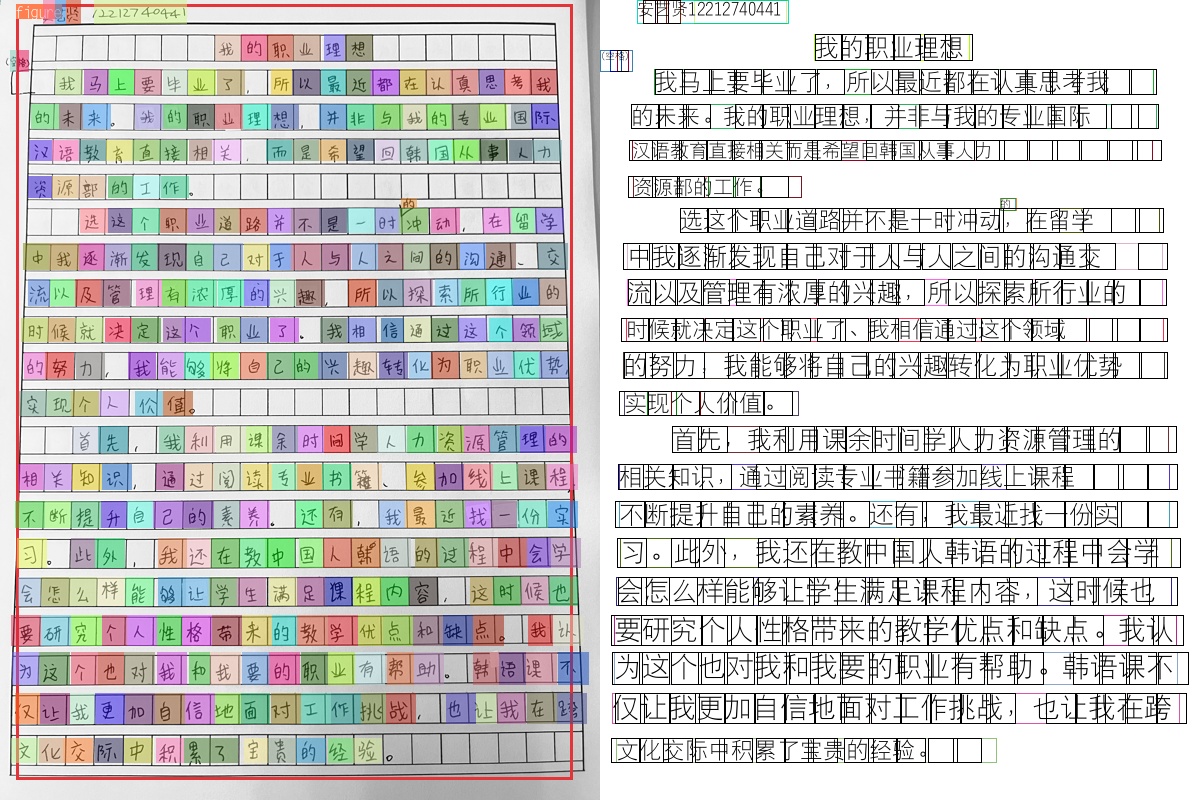 figure
安艺贤12212740441
我的职业理想
(空格)
我马上要毕业了，所以最近都在认真思考我
的未来。我的职业理想，并非与我的专业国际
汉语教育直接相关，而是希望回韩国从事人力
资源部的工作。
选这个职业道路并不是一时的冲动，在留学
中我逐渐发现自己对于人与人之间的沟通、交
流以及管理有浓厚的兴趣，所以探索所行业的
时候就决定这个职业了。我相信通过这个领域
的努力，我能够将自己的兴趣转化为职业优势，
实现个人价值。
首先，我利用课余时间学人力资源管理的
相关知识，通过阅读专业书籍、参加线上课程，
不断提升自己的素养。还有，我最近找一份实
习。此外，我还在教中国人韩语的过程中会学
会怎么样能够让学生满足课程内容，这时候也
要研究个人性格带来的教学优点和缺点。我认
为这个也对我和我要的职业有帮助。韩语课不
仅让我更加自信地面对工作挑战，也让我在跨
文化交际中积累了宝贵的经验。
安艺贤12212740441
我的职业理想
(空格)
我马上要毕业了，所以最近都在认真思考我
的未来。我的职业理想，并非与我的专业国际
汉语教育直接相关而是希望回韩国从事人力
资源部的工作。
的
选这个职业道路并不是十时冲动，在留学
中我逐渐发现自己对于人与人之间的沟通交
流以及管理有浓厚的兴趣，所以探索所行业的
时候就决定这个职业了、我相信通过这个领域
的努力，我能够将自己的兴趣转化为职业优势
实现个人价值。
首先，我利用课余时间学人力资源管理的
相关知识，通过阅读专业书籍参加线上课程
不断提升自己的素养。还有，我最近找一份实
习。此外，我还在教中国人韩语的过程中会学
会怎么样能够让学生满足课程内容，这时候也
要研究个人性格带来的教学优点和缺点。我认
为这个也对我和我要的职业有帮助。韩语课不
仅让我更加自信地面对工作挑战，也让我在跨
文化交际中积累了宝贵的经验。